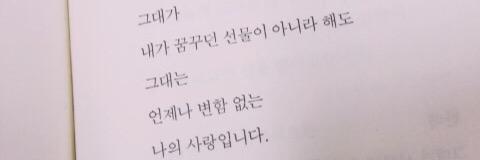 그대가
내가 꿈꾸던 선물이 아니라 해도
그대는
언제나 변함 없는
나의 사랑입니다.